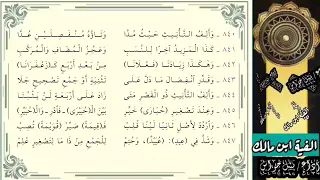 ٨٤١ ـ وَأَلِفُ التَّأْنِيثِ حَيْثُ مُدَّا وَتَاؤُهُ مُنْفَصِلَيْنِ عُدَّا
٨٤٢ ـ كَذَا الْمَزِيدُ آخِرًا لِلنَّسَبِ وَعَجُزُ الْمُضَافِ وَالْمُرَكَّبِ
٨٤٣ ـ وَهَكَذَا زِيَادَتَا فَعْلَانَا مِنْ بَعْدِ أَرْبَعٍ كَزَعْفَرَانَا
٨٤٤ ـ وَقَدِّرِ انْفِصَالَ مَا دَلَّ عَلَى تَثْنِيَةٍ أَوْ جَمْعِ تَصْحِيحٍ جَلَا
٨٤٥ ـ وَأَلِفُ التَّأْنِيثِ ذُو الْقَصْرِ مَتَى زَادَ عَلَى أَرْبَعَةٍ لَنْ يَثْبُتَا
٨٤٦ ـ وَعِنْدَ تَصْغِيرِ (حُبَارَى) خَيِّرِ بَيْنَ (الْحُبَيْرَى) ـ فَادْرِ ـ وَ(الْحُبَيِّرِ)
٨٤٧ ـ وَارْدُدْ لِأَصْلٍ ثَانِيًا لَيْنًا قُلِبْ فَـ(قِيمَةً) صَيِّرْ (قُوَيْمَةً) تُصِبْ
٨٤٧ ـ وَشَذَّ فِي (عِيدٍ): (عُيَيْدٌ)، وَحُتِمْ لِلْجَمْعِ مِنْ ذَا مَا لِتَصْغِيرٍ عُلِمْ
الفية ابن مالك